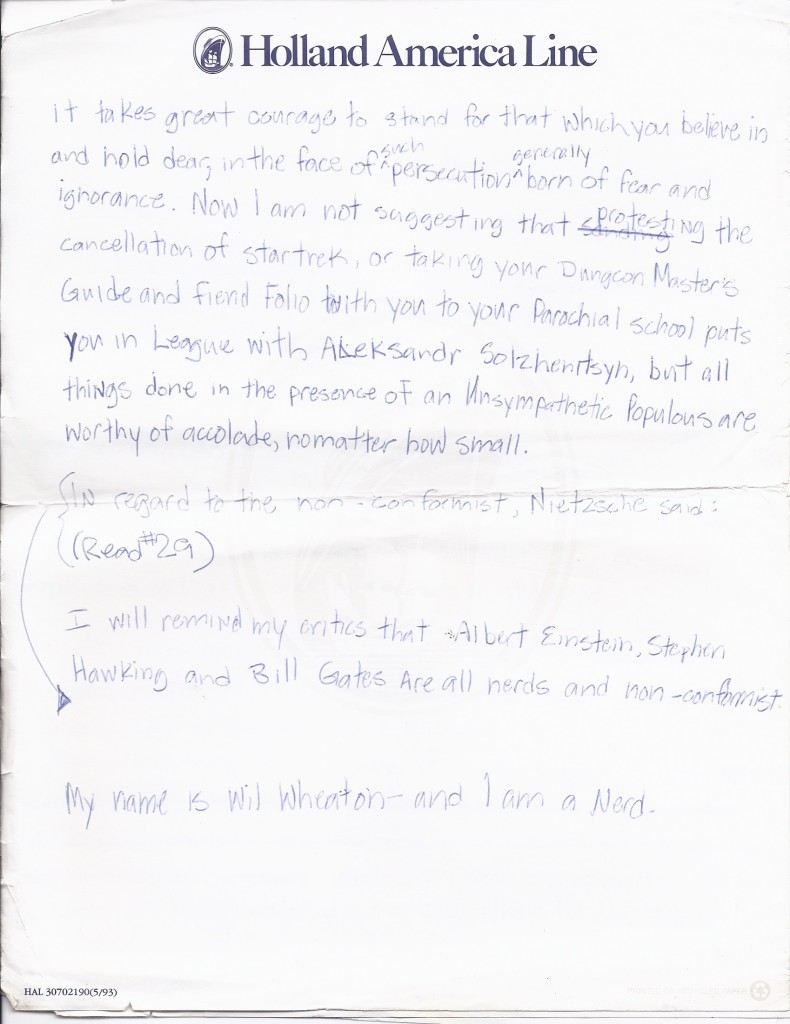 Holland America Line
it takes great courage to stand for that which you believe in
and hold dear, in the face of ^such persecution ^generally born of fear and
ignorance. Now I am not suggesting that protesting the
cancellation of startrek, or taking your Dungeon Master's
Guide and Fiend Folio with you to your Parochial school puts
you in League with Aleksandr Solzhenitsyn, but all
things done in the presence of an Unsympathetic Populous are
worthy of accolade, no matter how small.
{IN regard to the non-conformist, Nietzsche said:
(Read #29)
I will remind my critics that Albert Einstein, Stephen
Hawking and Bill Gates Are all nerds and non-conformist.
My name is Wil Wheaton - and I am a Nerd.
HAL 30702190(5/93)